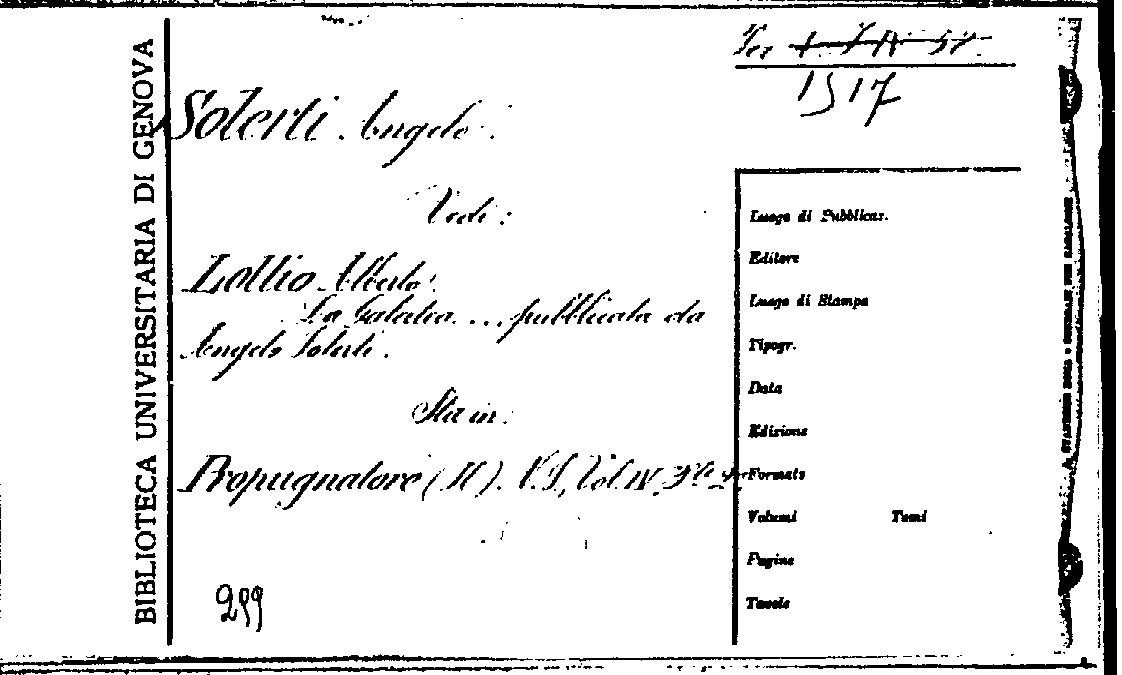 BIBLIOTECA UNIVERSITARIA DI GENOVA
Per
1517
Solerti Angelo.
Vedi:
Lollio Alberto.
La Galatea... pubblicata da
Angelo Solerti.
Sta in:
Propugnatore (Il). N.S, Vol. IV, Pte 2
299
Luogo di Pubblicaz.
Editore
Luogo di Stampa
Tipogr.
Data
Edizione
Formato
Volumi Tomi
Pagine
Tavole